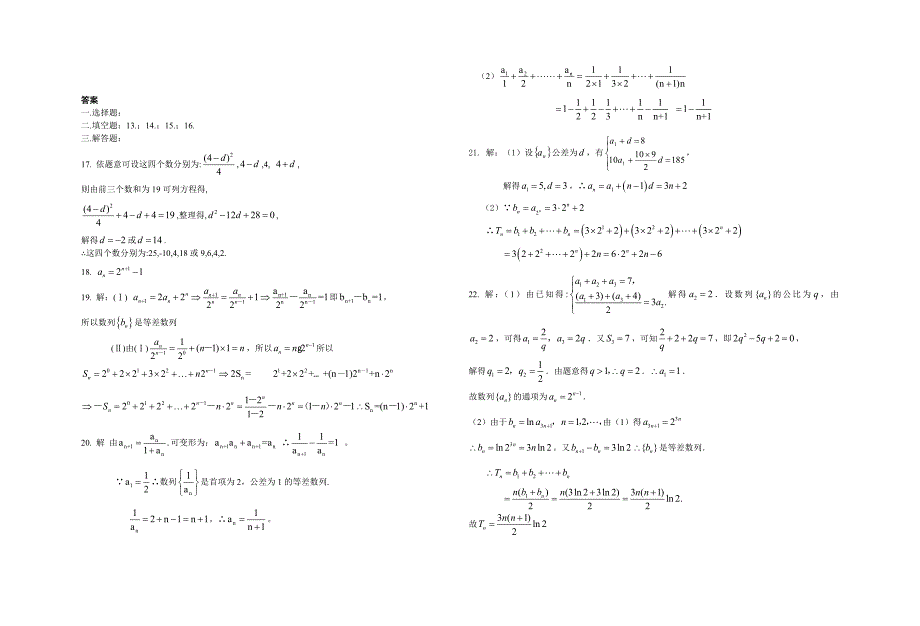 答案
一.选择题：
二.填空题：13.；14.；15.；16.
三.解答题：
17. 依题意可设这四个数分别为:(4−d)²/4, 4−d, 4, 4+d,
则由前三个数和为 19 可列方程得,
(4−d)²/4+4−d+4=19,整理得, d²−12d+28=0,
解得 d=−2 或 d=14.
∴这四个数分别为:25,-10,4,18 或 9,6,4,2.
18. aₙ=2ⁿ⁺¹−1
19. 解：(Ⅰ) aₙ₊₁=2aₙ+2ⁿ⇒aₙ₊₁/2ⁿ=aₙ/2ⁿ⁻¹+1⇒aₙ₊₁/2ⁿ−aₙ/2ⁿ⁻¹=1即bₙ₊₁−bₙ=1,
所以数列{bₙ}是等差数列
(Ⅱ)由(Ⅰ) aₙ/2ⁿ⁻¹=1/2⁰+(n−1)×1=n，所以aₙ=ng2ⁿ⁻¹所以
Sₙ=2⁰+2×2¹+3×2²+…+n2ⁿ⁻¹⇒2Sₙ= 2¹+2×2²+…+(n-1)2ⁿ⁻¹+n·2ⁿ
⇒−Sₙ=2⁰+2¹+2²+…+2ⁿ⁻¹−n·2ⁿ=(1−2ⁿ)/(1−2)−n·2ⁿ=(1−n)·2ⁿ−1∴Sₙ=(n−1)·2ⁿ+1
20. 解 由aₙ₊₁=aₙ/(1+aₙ).可变形为：aₙ₊₁aₙ+aₙ₊₁=aₙ ∴1/aₙ₊₁−1/aₙ=1 。
∵a₁=1/2∴数列{1/aₙ}是首项为 2，公差为 1 的等差数列.
1/aₙ=2+n−1=n+1，∴aₙ=1/(n+1)。
（2）a₁/1+a₂/2+……+aₙ/n=1/(2×1)+1/(3×2)+…+1/((n+1)n)
=1−1/2+1/2−1/3+…+1/n−1/(n+1) =1−1/(n+1)
21. 解：（1）设{aₙ}公差为d，有{a₁+d=8
10a₁+(10×9)/2 d=185，
解得a₁=5,d=3，∴aₙ=a₁+(n−1)d=3n+2
（2）∵bₙ=a₂ₙ=3·2ⁿ+2
∴Tₙ=b₁+b₂+…+bₙ=(3×2¹+2)+(3×2²+2)+…+(3×2ⁿ+2)
=3(2+2²+…+2ⁿ)+2n=6·2ⁿ+2n−6
22. 解：（1）由已知得:{a₁+a₂+a₃=7,
((a₁+3)+(a₃+4))/2=3a₂. 解得a₂=2．设数列{aₙ}的公比为q，由
a₂=2，可得a₁=2/q，a₃=2q．又S₃=7，可知2/q+2+2q=7，即2q²−5q+2=0,
解得q₁=2, q₂=1/2．由题意得q>1,∴q=2．∴a₁=1．
故数列{aₙ}的通项为aₙ=2ⁿ⁻¹．
（2）由于bₙ=ln a₃ₙ₊₁, n=1,2,…,由（1）得a₃ₙ₊₁=2³ⁿ
∴bₙ=ln2³ⁿ=3nln2，又bₙ₊₁−bₙ=3ln2∴{bₙ}是等差数列．
∴Tₙ=b₁+b₂+…+bₙ
=n(b₁+bₙ)/2=n(3ln2+3ln2)/2=3n(n+1)/2 ln2.
故Tₙ=3n(n+1)/2 ln2